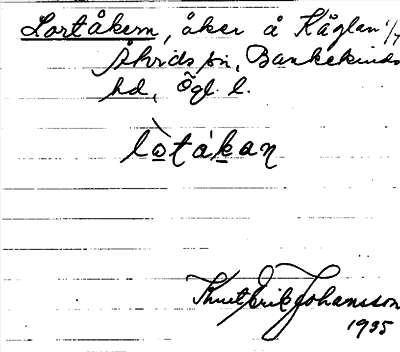 Lortåkern, åker å Käglan 1/7
Åtvids sn, Bankekinds
hd, Ögl. l.
lòtákan
Knut Erik Johansson
1935